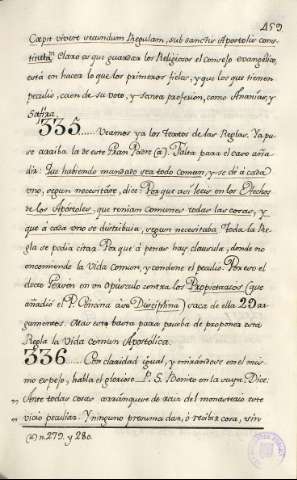 459
Cæpit vivere secundum Regulam, sub sanctis Apostolis cons-
titutam. Claro es que guardar los Religiosos el consejo evangelico,
está en hacer lo que los primeros fieles, y que los que tienen
peculio, caen de su voto, y santa profesion, como Ananías, y
Safira.
335..... Veamos ya los Textos de las Reglas. Ya pu-
se arriba la de este Gran Padre (a). Falta para el caso aña-
dir: Que habiendo mandado sea todo comun, y se dé à cada
uno, segun necesitáre, dice: Por que asi leeis en los Hechos
de los Apostoles, que tenian comunes todas las cosas, y
que à cada uno se distribuia, segun necesitaba. Toda la Re-
gla se podia citar. Por que à penas hay clausula, donde no
encomiende la Vida comun, y condene el peculio. Por eso el
docto Gerson en un Opusculo contra los Propietarios (que
añadió el P. Concina à su Disciplina) saca de ella 29 ar-
gumentos. Mas esto basta para prueba de proponer esta
Regla la Vida comun Apostolica.
336..... Con claridad igual, y mirandose en el mis-
mo espejo, habla el glorioso P. S. Benito en la suya. Dice:
„ Ante todas cosas arránquese de raiz del monasterio este
„ vicio peculiar. Y ninguno presuma dar, ò recibir cosa, sin
(a) n. 279. y 280.